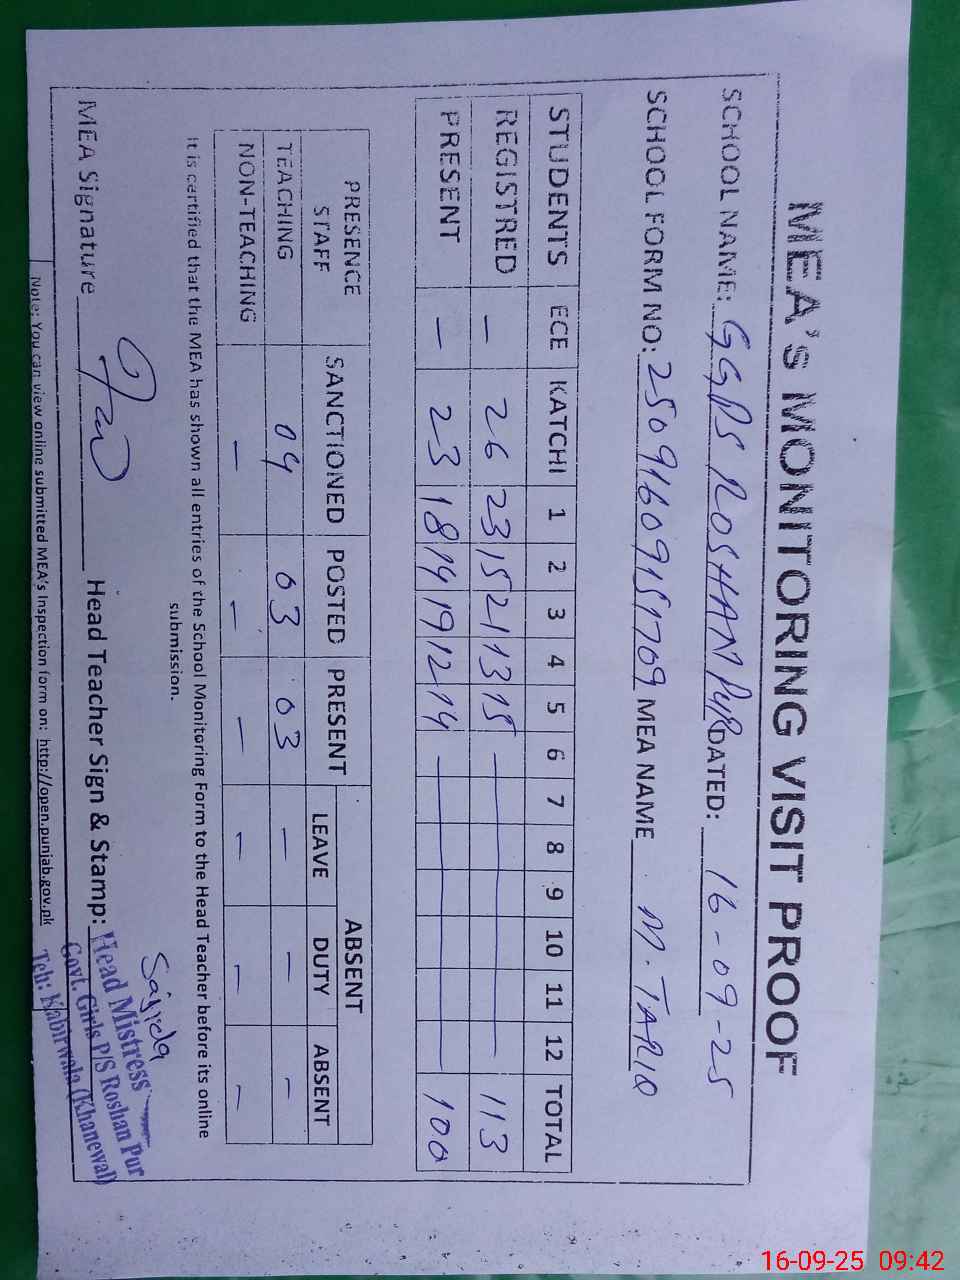 MEA's MONITORING VISIT PROOF
SCHOOL NAME: GGPS ROSHAN PUR DATED: 16-09-25
SCHOOL FORM NO: 25091609151709 MEA NAME M. TARIQ
STUDENTS ECE KATCHI 1 2 3 4 5 6 7 8 9 10 11 12 TOTAL
REGISTRED - 26 23 15 21 13 15 - 113
PRESENT - 23 18 14 19 12 14 - 100
PRESENCE STAFF SANCTIONED POSTED PRESENT ABSENT
LEAVE DUTY ABSENT
TEACHING 04 03 03 - - -
NON-TEACHING - - - - - -
It is certified that the MEA has shown all entries of the School Monitoring Form to the Head Teacher before its online
submission.
MEA Signature Head Teacher Sign & Stamp: Sajida
Head Mistress
Govt. Girls P/S Roshan Pur
Teh: Kabirwala (Khanewal)
Note: You can view online submitted MEA's Inspection form on: http://open.punjab.gov.pk
16-09-25 09:42